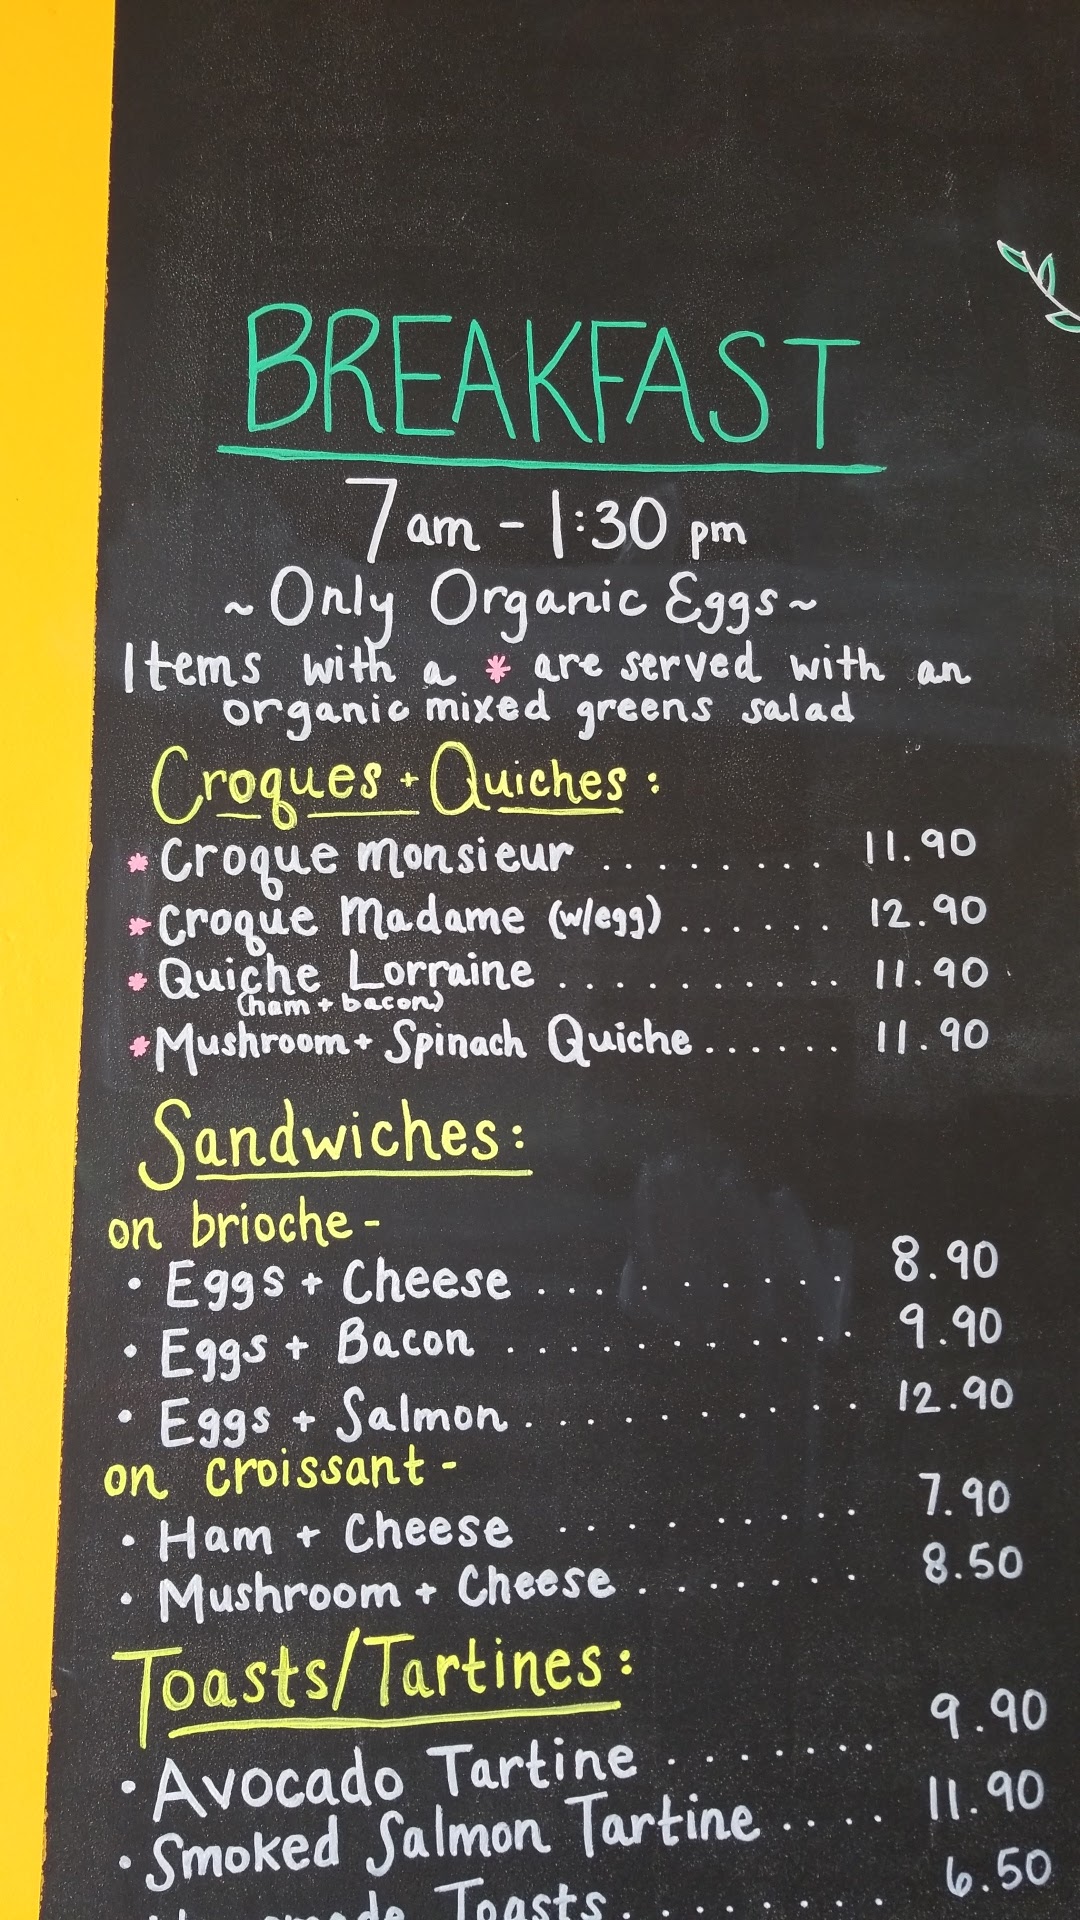 BREAKFAST
7am - 1:30 pm
~Only Organic Eggs~
Items with a * are served with an
organic mixed greens salad
Croques + Quiches:
* Croque Monsieur ........ 11.90
* Croque Madame (w/egg) ...... 12.90
* Quiche Lorraine .......... 11.90
(ham + bacon)
* Mushroom + Spinach Quiche ...... 11.90
Sandwiches:
on brioche -
• Eggs + Cheese .......... 8.90
• Eggs + Bacon ........... 9.90
• Eggs + Salmon ........... 12.90
on croissant -
• Ham + Cheese ........ 7.90
• Mushroom + Cheese ....... 8.50
Toasts/Tartines:
• Avocado Tartine ....... 9.90
• Smoked Salmon Tartine .... 11.90
Toasts ....... 6.50